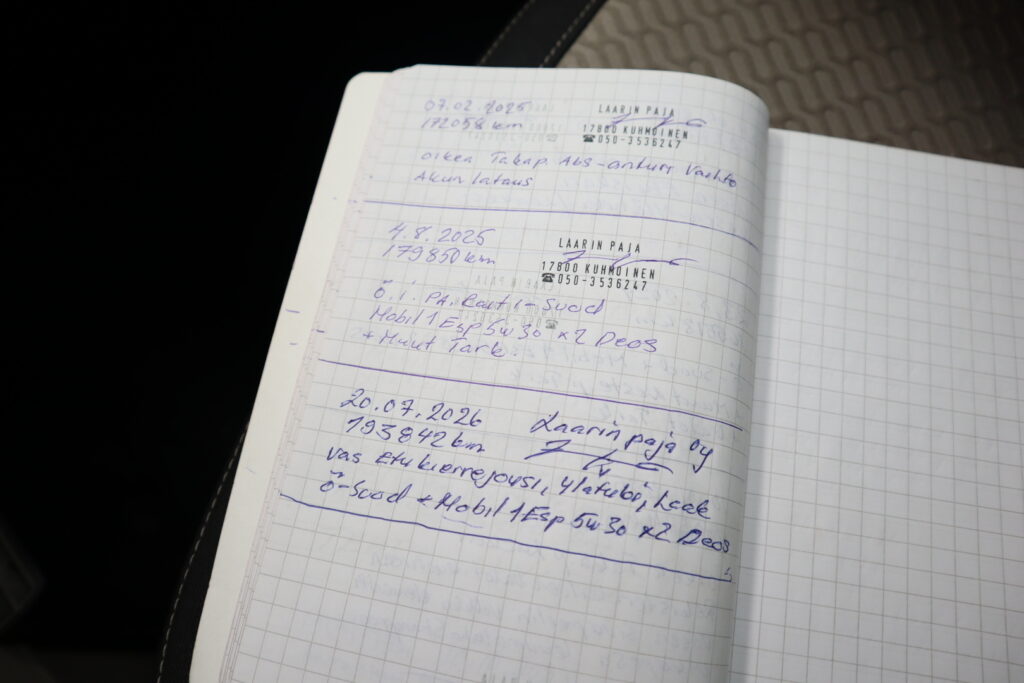 07.02.2025
172058 km
LAARIN PAJA
17800 KUHMOINEN
☎050-3536247
oikea Takap. Abs-anturi Vaihto
Akun lataus
4.8.2025
179850 km
LAARIN PAJA
17800 KUHMOINEN
☎050-3536247
Ö.i. PA. Rait i-Suod
Mobil 1 Esp 5w30 x2 Deos
+ Muut Tark.
20.07.2026
193842 km
Laarin paja Oy
Vas Etu kierrejousi, ylatubi,
Ö-Suod + Mobil 1 Esp 5w30 x2 Deos